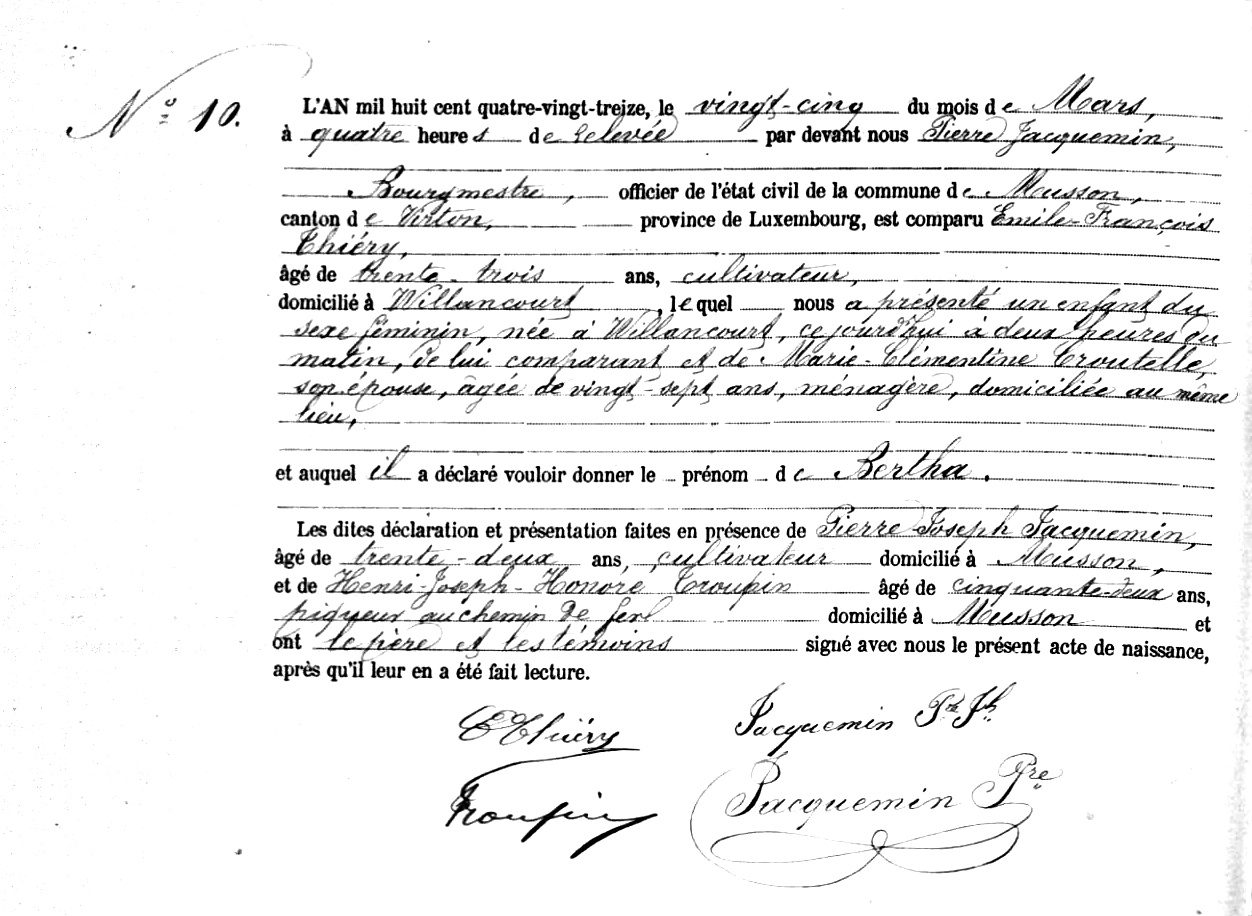 N° 10.
L'AN mil huit cent quatre-vingt-treize, le vingt-cinq du mois de Mars,
à quatre heures de relevée par devant nous Pierre Jacquemin,
Bourgmestre, officier de l'état civil de la commune de Musson,
canton de Virton, province de Luxembourg, est comparu Emile-François
Thiéry,
âgé de trente-trois ans, cultivateur,
domicilié à Willancourt, lequel nous a présenté un enfant du
sexe féminin, née à Willancourt, ce jourd'hui à deux heures du
matin, de lui comparant et de Marie-Clémentine Troutelle,
son épouse, âgée de vingt-sept ans, ménagère, domiciliée au même
lieu,
et auquel il a déclaré vouloir donner le prénom de Bertha.
Les dites déclaration et présentation faites en présence de Pierre Joseph Jacquemin,
âgé de trente-deux ans, cultivateur domicilié à Musson,
et de Henri-Joseph-Honoré Troupin âgé de cinquante-deux ans,
piqueur au chemin de fer domicilié à Musson et
ont le père et les témoins signé avec nous le présent acte de naissance,
après qu'il leur en a été fait lecture.
E Thiéry Jacquemin Pre Jh
Troupin Jacquemin Pre